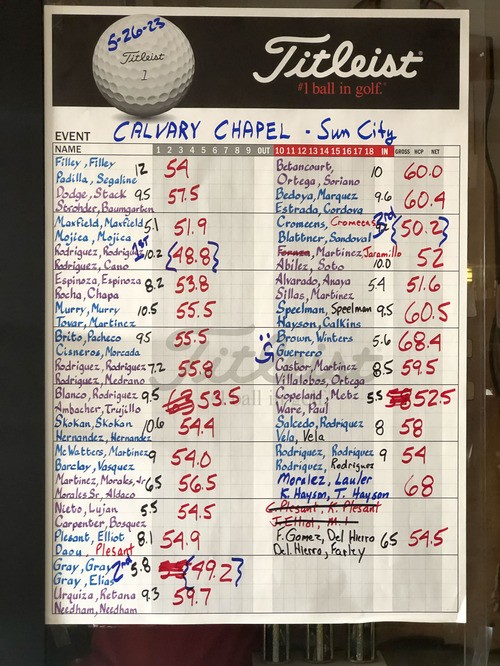 5-26-23
Titleist
1
Titleist
#1 ball in golf.
EVENT CALVARY CHAPEL - Sun City
NAME 1 2 3 4 5 6 7 8 9 OUT 10 11 12 13 14 15 16 17 18 IN GROSS HCP NET
Filley, Filley 12 54
Padilla, Segaline
Dodge, Stack 9.5 57.5
Strohder, Baumgarten
Maxfield, Maxfield 5.1 51.9
Mojica, Mojica
Rodriguez, Rodriguez 1st 10.2 {48.8}
Rodriguez, Cano
Espinoza, Espinoza 8.2 53.8
Rocha, Chapa
Murry, Murry 10.5 55.5
Tovar, Martinez
Brito, Pacheco 9.5 55.5
Cisneros, Morcada
Rodriguez, Rodriguez 7.2 55.8
Rodriguez, Medrano
Blanco, Rodriguez 9.5 53.5
Ambacher, Trujillo
Skokan, Skokan 10.6 54.4
Hernandez, Hernandez
McWatters, Martinez 9 54.0
Barclay, Vasquez
Martinez, Morales, Jr 6.5 56.5
Morales Sr, Aldaco
Nieto, Lujan 5.5 54.5
Carpenter, Bosquez
Plesant, Elliot 8.1 54.9
Daou, Plesant
Gray, Gray 2nd 5.8 {49.2}
Gray, Elias
Urquiza, Retana 9.3 59.7
Needham, Needham
Betancourt, 10 60.0
Ortega, Soriano
Bedoya, Marquez 9.6 60.4
Estrada, Cordova
Cromeens, Cromeens 3rd {50.2}
Blattner, Sandoval
Martinez, Jaramillo 52
Abilez, Soto 10.0
Alvarado, Anaya 5.4 51.6
Sillas, Martinez
Speelman, Speelman 9.5 60.5
Hayson, Calkins
Brown, Winters 5.6 68.4
Guerrero
Castor, Martinez 8.5 59.5
Villalobos, Ortega
Copeland, Metz 5.5 52.5
Ware, Paul
Salcedo, Rodriquez 8 58
Vela, Vela
Rodriguez, Rodriguez 9 54
Rodriguez, Rodriguez
Moralez, Lawler 68
K. Hayson, T. Hayson
C. Plesant, K. Plesant
J. Elliot, M.
F. Gomez, Del Hierro 6.5 54.5
Del Hierro, Farly